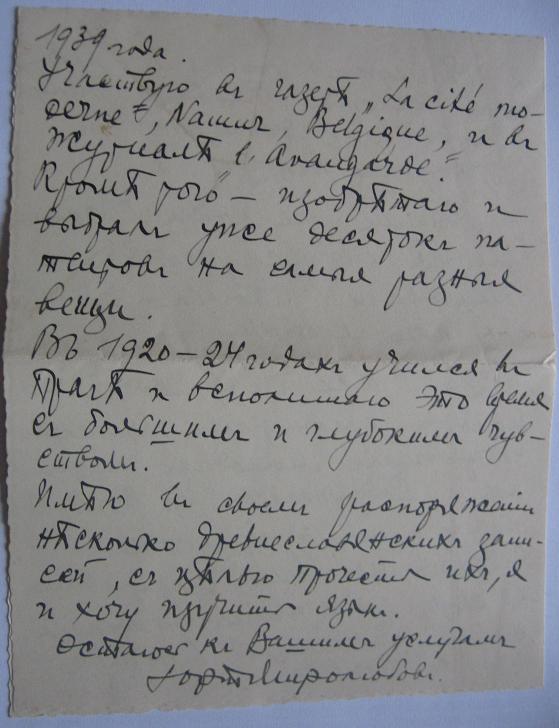 1939 года.
Участвую въ газетѣ „La cité mo-
derne", Namur, Belgique, и въ
журналѣ „L'Avangarde".
Кромѣ того — изобрѣтаю и
выбралъ уже десятокъ па-
тентовъ на самыя разныя
вещи.
Въ 1920–24 годахъ учился въ
Прагѣ и вспоминаю это время
съ большимъ и глубокимъ чув-
ствомъ.
Имѣю въ своемъ распоряженіи
нѣсколько древнеславянскихъ запи-
сей, съ цѣлью прочесть ихъ, я
и хочу изучить языкъ.
Остаюсь къ Вашимъ услугамъ
Юрій Миролюбовъ.